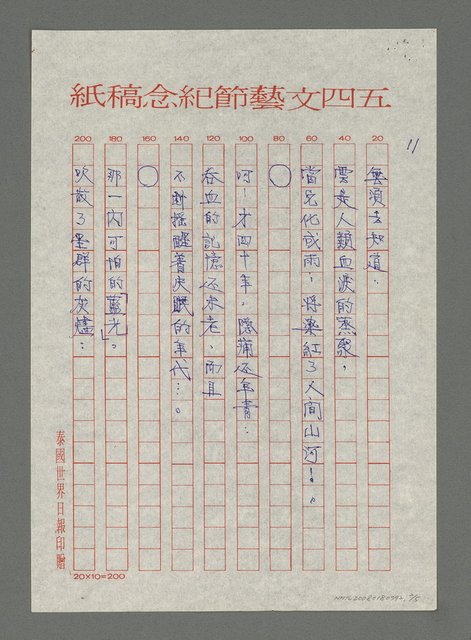 五四文藝節紀念稿紙
11
20
40
60
80
100
120
140
160
180
200
無須去知道,
雲是人類血淚的蒸聚,
當兄化成雨,將染紅了人間山河!。
○
呵!才四十年,隱痛还年青:
吞血的記憶还未老,而且
不斷搖醒著失眠的年代…。
○
那一內可怕的「藍光」。
吹散了墨群的灰燼:
泰國世界日報印贈
20×10=200